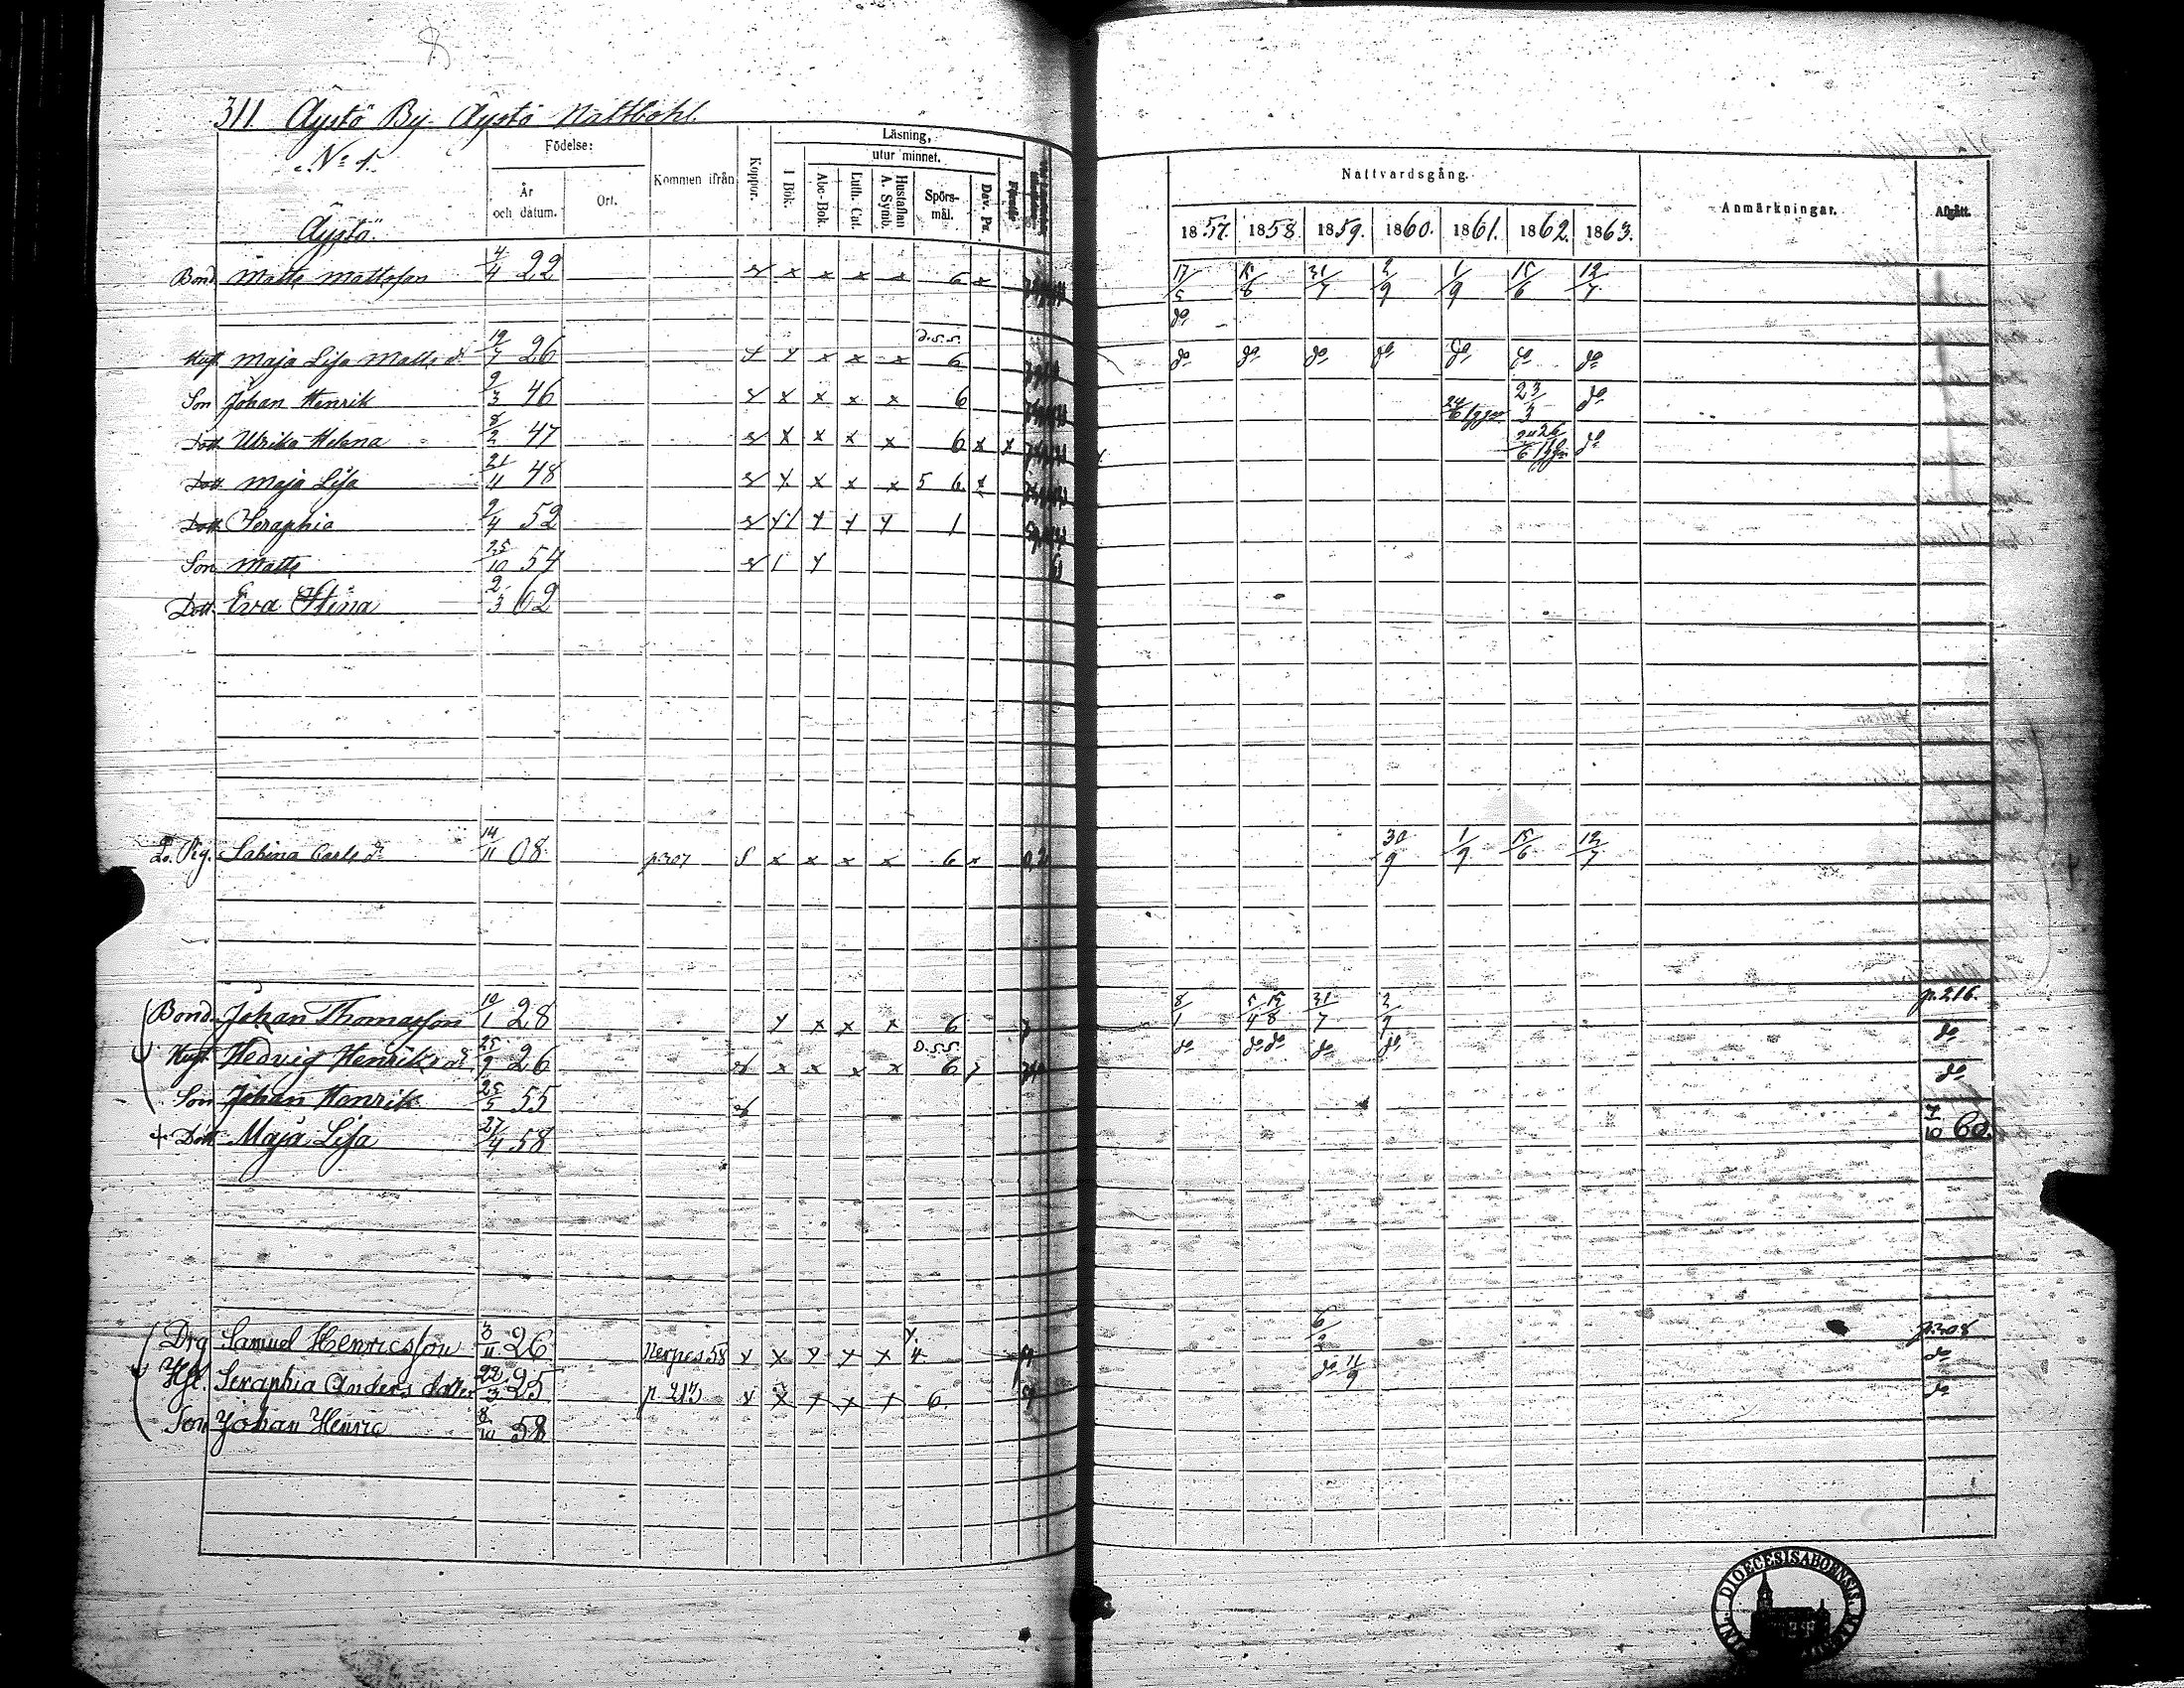 311. Åystö By. Åystö Nattbohl.
№ 1.
Födelse:
År och datum.
Ort.
Kommen ifrån
Koppor.
Läsning,
utur minnet.
I Bok.
Abc-Bok.
Luth. Cat.
Hustaflan A. Symb.
Spörsmål.
Dav. Ps.
Nattvardsgång.
1857. 1858 1859. 1860. 1861. 1862. 1863.
Anmärkningar.
Afgått.
Åystö.
Bond. Matts Mattsson 4/4 22 x x x x 6 x 17/5 15/8 31/7 2/9 1/9 15/6 12/7
do
Hust. Maja Lisa Matts dr 19/7 26 x x x 6 do do do do do do do
Son Johan Henrik 9/3 46 x x x x 6 24/6 23/3 do
Dott Ulrika Helena 8/2 47 x x x x 6 x x do
Dott Maja Lisa 21/11 48 x x x x 5 6
Dott Seraphia 9/4 52 1
Son Matts 25/10 54
Dott. Eva Stina 2/3 62
Lo. Pig. Sabina Carls dr 14/11 08 p.307 x x x x 6 x 30/9 1/9 15/6 12/7
Bond. Johan Thomasson 10/1 28 x x x 6 8/1 5/4 15/8 31/7 2/9 p.216.
Hust Hedvig Henriks dr 25/9 26 x x x x 6 do do do do do do
Son Johan Henrik 25/5 55 do
+ Dott Maja Lisa 27/4 58 7/10 60.
Drg Samuel Henricsson 3/11 26 Nerpes 58 4 6/2 p.308
Hst. Seraphia Anders dotter 22/3 25 p 313 6. do 11/9 do
Son Johan Henric 8/10 58 do
DIOECESIS ABOENSIS